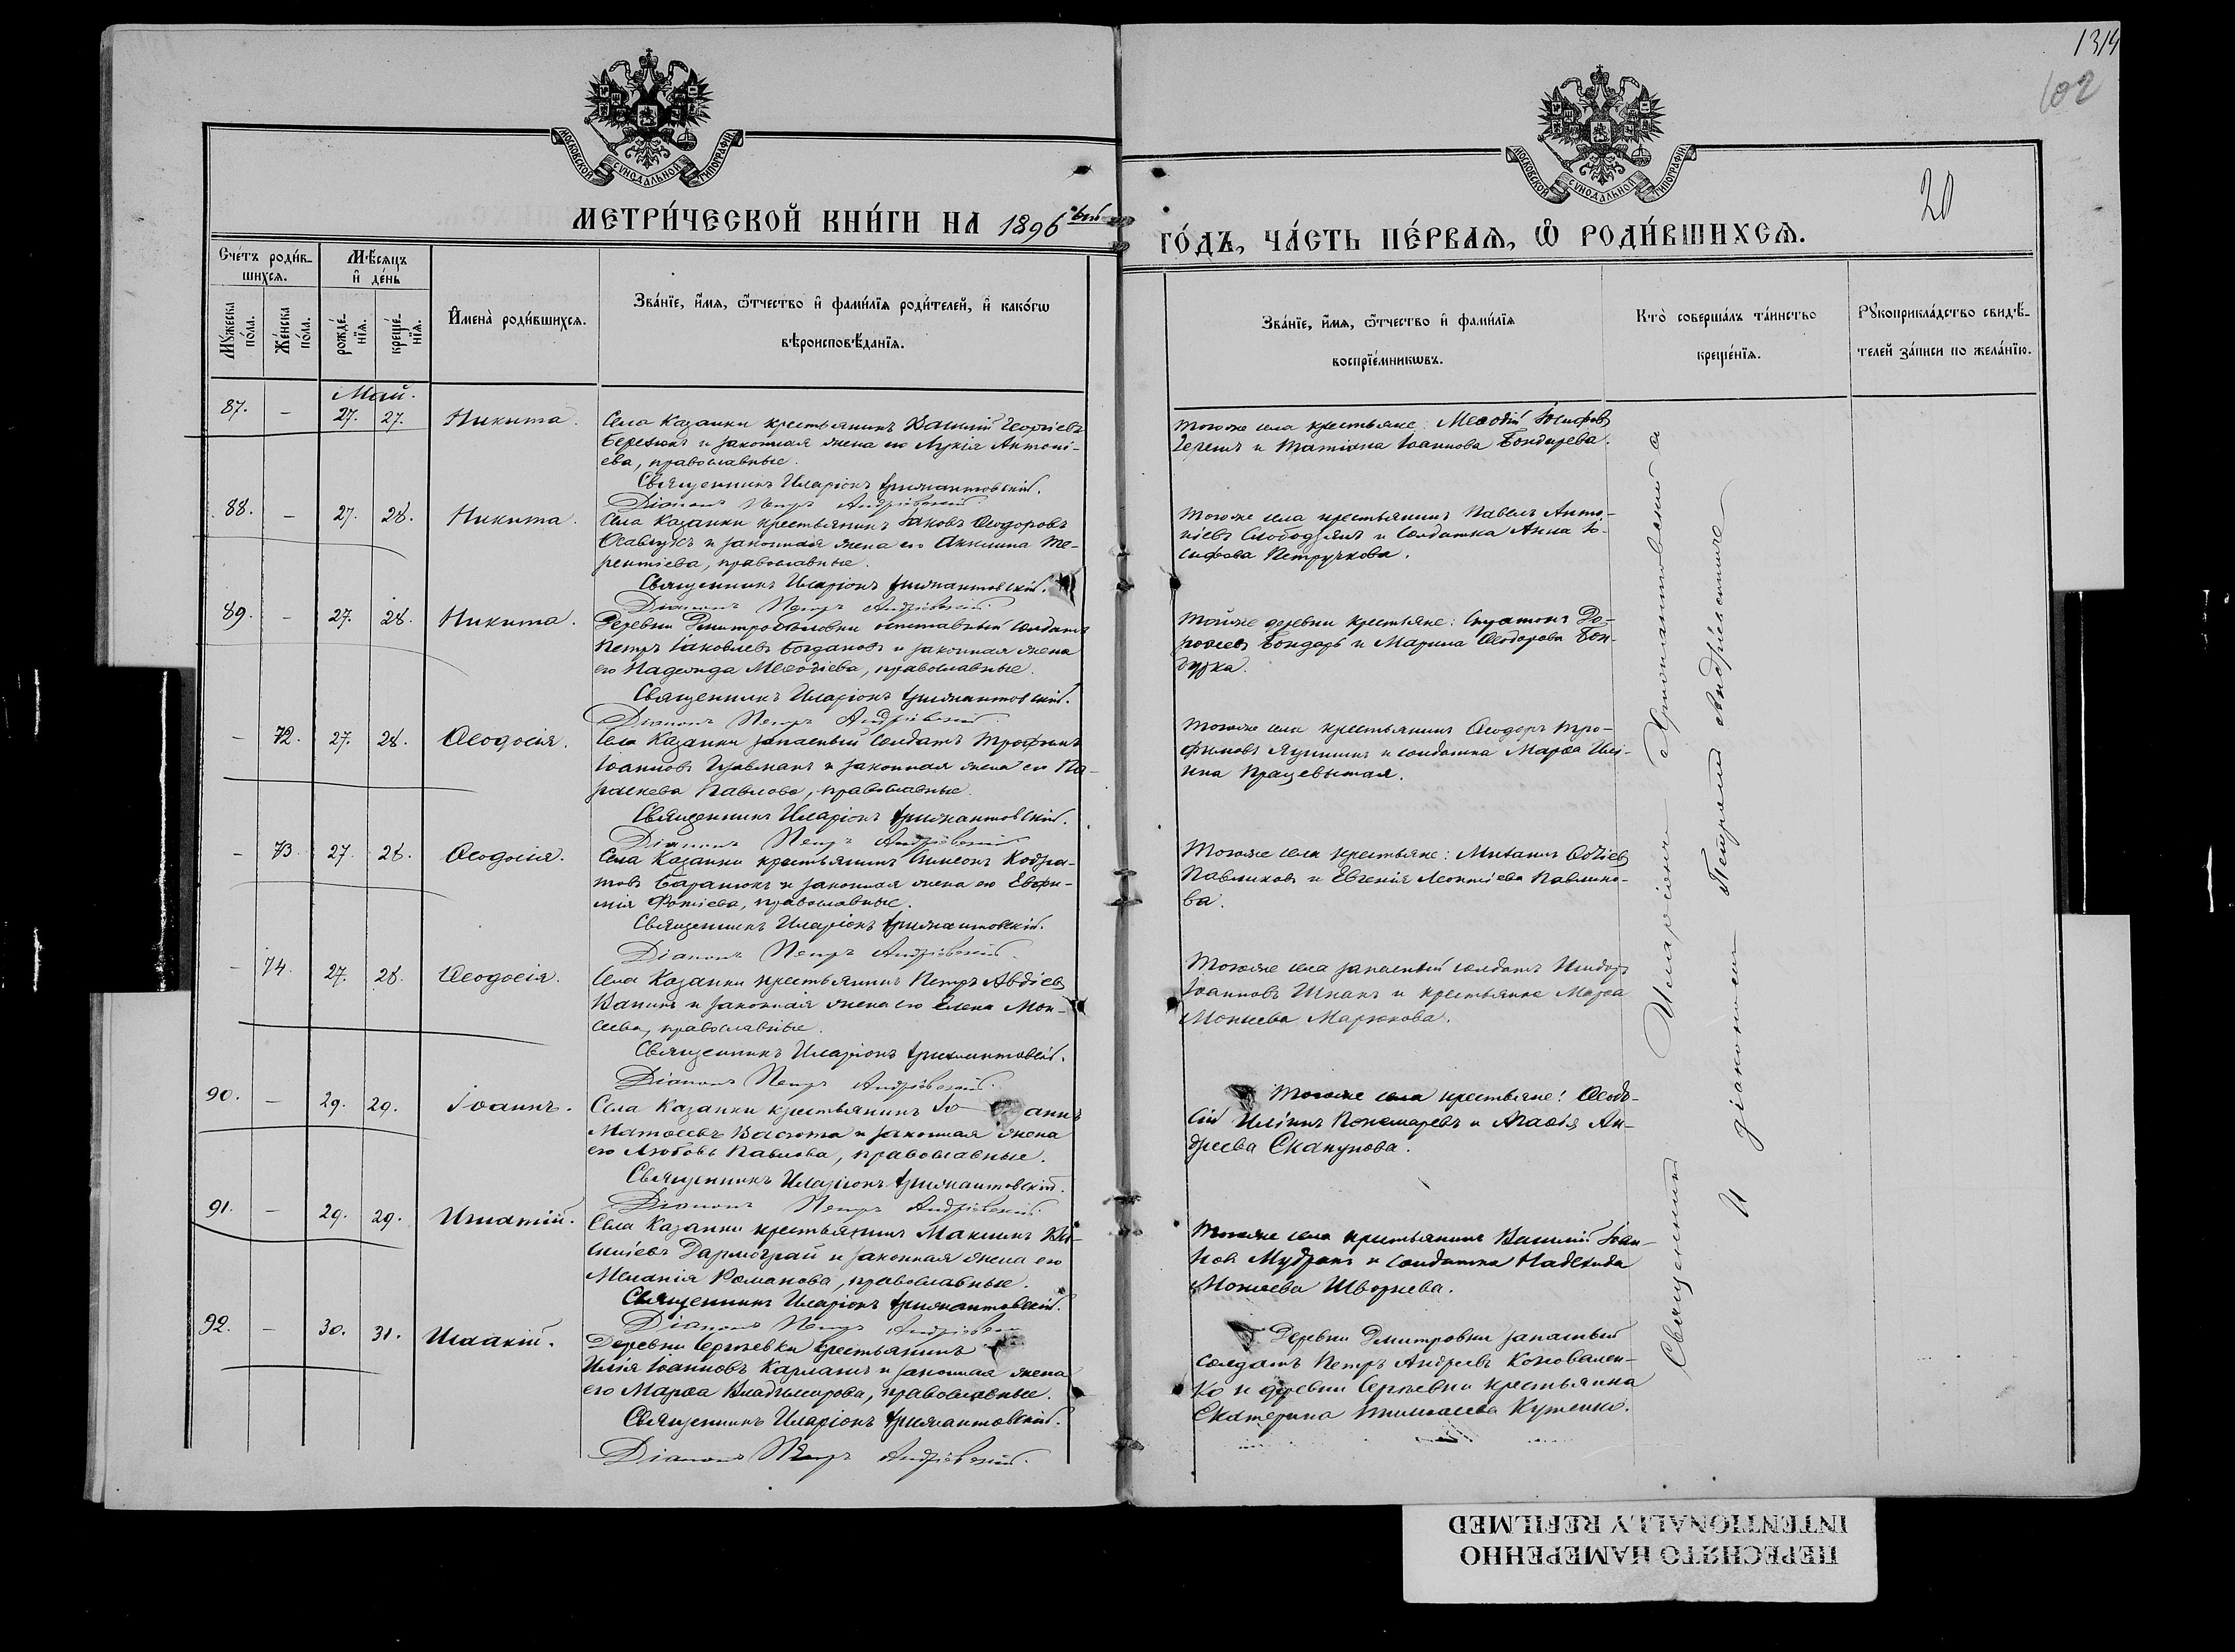 1314
102
20
МОСКОВСКОЙ СѴНОДАЛЬНОЙ ТИПОГРАФІИ
МОСКОВСКОЙ СѴНОДАЛЬНОЙ ТИПОГРАФІИ
МЕТРИ́ЧЕСКОЙ КНИ́ГИ НА 1896 ый
ГО́ДЪ, ЧА́СТЬ ПЕ́РВАѦ, Ѡ҆ РОДИ́ВШИХСѦ.
Сче́тъ роди́в-
шихсѧ.
Мѣ́сѧцъ
и҆ де́нь
Мꙋ́жеска
по́ла.
Же́нска
по́ла.
рожде́-
нїѧ.
креще́-
нїѧ.
И҆мена̀ роди́вшихсѧ.
Зва́нїе, и҆́мѧ, ѻ҆́тчество и҆ фами́лїѧ роди́телей, и҆ како́гѡ
вѣроисповѣ́данїѧ.
Зва́нїе, и҆́мѧ, ѻ҆́тчество и҆ фами́лїѧ
воспрїе́мникѡвъ.
Кто̀ соверша́лъ та́инство
креще́нїѧ.
Рꙋкоприкла́дство свидѣ́-
телей за́писи по жела́нїю.
Май.
87. – 27. 27. Никита.
Села Казанки крестьянинъ Василій Георгіевъ
Березюкъ и законная жена его Лукія Антоні-
ева, православные.
Священникъ Иларіонъ
Діаконъ Петръ Андріевскій.
Тогоже села крестьяне: Меѳодій Іосифовъ
Черешъ и Татіяна Іоаннова Бондарева.
88. – 27. 28. Никита.
Села Казанки крестьянинъ Іаковъ Ѳеодоровъ
и законная жена его Акилина Те-
рентіева, православные.
Священникъ Иларіонъ
Діаконъ Петръ Андріевскій.
Тогоже села крестьянинъ Павелъ Анто-
ніевъ Слободянъ и солдатка Анна Іо-
сифова Петручкова.
89. – 27. 28. Никита.
Деревни отставный солдатъ
Петръ Іаковлевъ Богдановъ и законная жена
его Надежда Меѳодіева, православные.
Священникъ Иларіонъ
Діаконъ Петръ Андріевскій.
Тойже деревни крестьяне: До-
роѳеевъ Бондарь и Марина Ѳеодорова Бон-
дурка.
– 72. 27. 28. Ѳеодосія.
Села Казанки запасный солдатъ Трофимъ
Іоанновъ и законная жена его Па-
раскева Павлова, православные.
Священникъ Иларіонъ
Діаконъ Петръ Андріевскій.
Тогоже села крестьянинъ Ѳеодоръ Тро-
фимовъ и солдатка Марѳа Илі-
ина
– 73. 27. 28. Ѳеодосія.
Села Казанки крестьянинъ Симеонъ Кодра-
товъ Баранюкъ и законная жена его Евфи-
мія Фотіева, православные.
Священникъ Иларіонъ
Діаконъ Петръ Андріевскій.
Тогоже села крестьяне:
Павликовъ и Евгенія Леонтіева Павлико-
ва.
– 74. 27. 28. Ѳеодосія.
Села Казанки крестьянинъ Петръ Авдіевъ
Ванинъ и законная жена его Елена Мои-
сеева, православные.
Священникъ Иларіонъ
Діаконъ Петръ Андріевскій.
Тогоже села запасный солдатъ Исидоръ
Іоанновъ Шпакъ и крестьянка Марѳа
Моисеева Марюкова.
90. – 29. 29. Іоаннъ.
Села Казанки крестьянинъ Іо-аннъ
Матѳеевъ Васюта и законная жена
его Любовь Павлова, православные.
Священникъ Иларіонъ
Діаконъ Петръ Андріевскій.
Тогоже села крестьяне: Ѳеодо-
сій Иліинъ Пономаревъ и Агаѳія Ан-
дреева Скакунова.
91. – 29. 29. Игнатій.
Села Казанки крестьянинъ Максимъ Ва-
силіевъ Дармограй и законная жена его
Меланія Романова, православные.
Священникъ Иларіонъ
Діаконъ Петръ Андріевскій.
Тогоже села крестьянинъ Василій Іоан-
новъ Мудракъ и солдатка Надежда
Моисеева Шворнева.
92. – 30. 31. Исаакій.
Деревни Сергѣевки крестьянинъ
Илія Іоанновъ Карманъ и законная жена
его Марѳа Владимирова, православные.
Священникъ Иларіонъ
Діаконъ Петръ Андріевскій.
Деревни Дмитровки запасный
солдатъ Петръ Андреевъ Коновален-
ко и деревни Сергѣевки крестьянка
Екатерина Тимоѳеева Куценко.
Священникъ Иларіонъ
и діакономъ Петромъ
ПЕРЕСНЯТО НАМЕРЕННО
INTENTIONALLY REFILMED